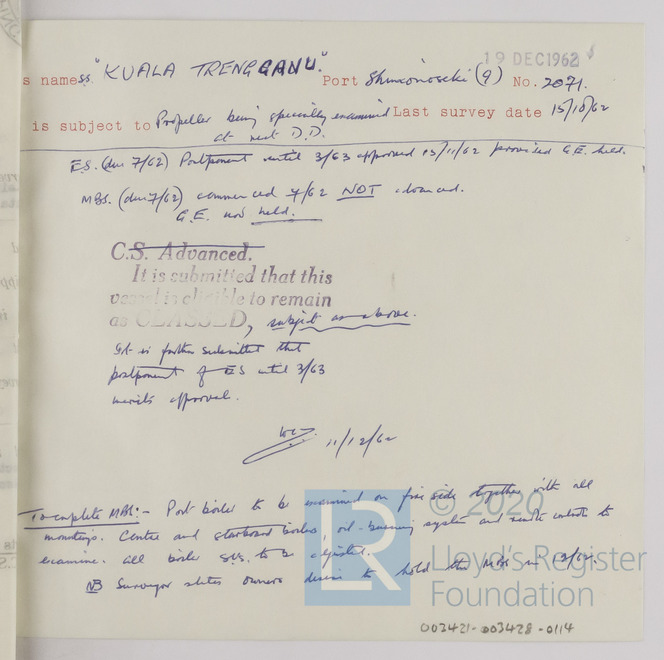 19 DEC 1962
s name ss. "KUALA TRENGGANU" Port Shimonoseki (9) No. 2071.
is subject to Propeller being specially examined Last survey date 15/10/62
at next D.D.
ES. (due 7/62) Postponement until 3/63 approved 15/11/62 provided G.E. held.
MBS. (due 7/62) commenced 7/62 NOT advanced.
G.E. now held.
C.S. Advanced.
It is submitted that this
vessel is eligible to remain
as CLASSED, subject as above.
It is further submitted that
postponement of ES until 3/63
merits approval.
11/12/62
To complete MBS:- Port boiler to be examined on fire side together with all
mountings. Centre and starboard boilers, oil-burning system and remote controls to
examine. All boiler S.Vs. to be adjusted.
NB Surveyor states owners desire to hold the MBS in 3/62.
© 2020
LR
Lloyd's Register
Foundation
003421-003428-0114